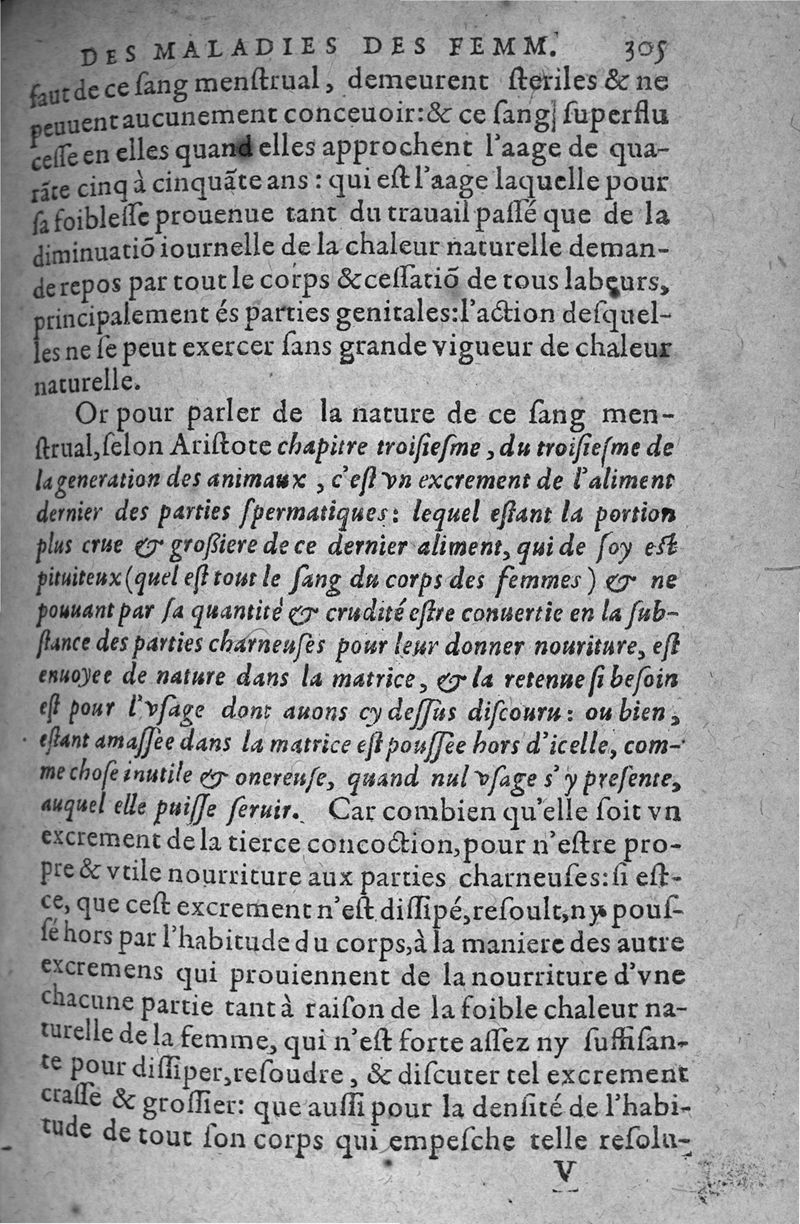 DES MALADIES DES FEMM. 305
faut de ce ſang menſtrual, demeurent ſteriles & ne
peuuent aucunement conceuoir:& ce ſang ſuperflu
ceſſe en elles quand elles approchent l'aage de qua-
rãte cinq à cinquãte ans : qui eſt l'aage laquelle pour
ſa foibleſſe prouenue tant du trauail paſſé que de la
diminuatiõ iournelle de la chaleur naturelle deman-
de repos par tout le corps & ceſſatiõ de tous labeurs,
principalement és parties genitales:l'action deſquel-
les ne ſe peut exercer ſans grande vigueur de chaleur
naturelle.
Or pour parler de la nature de ce ſang men-
ſtrual,ſelon Ariſtote chapitre troiſieſme, du troiſieſme de
la generation des animaux, c'eſt vn excrement de l'aliment
dernier des parties ſpermatiques: lequel eſtant la portion
plus crue & großiere de ce dernier aliment, qui de ſoy eſt
pituiteux (quel eſt tout le ſang du corps des femmes) & ne
pouuant par ſa quantité & crudité eſtre conuertie en la ſub-
ſtance des parties charneuſes pour leur donner nouriture, eſt
enuoyee de nature dans la matrice, & la retenue ſi beſoin
eſt pour l'vſage dont auons cy deſſus diſcouru: ou bien,
eſtant amaſſee dans la matrice eſt pouſſee hors d'icelle, com-
me choſe inutile & onereuſe, quand nul vſage s'y preſente,
auquel elle puiſſe ſeruir. Car combien qu'elle ſoit vn
excrement de la tierce concoction,pour n'eſtre pro-
pre & vtile nourriture aux parties charneuſes:ſi eſt-
ce, que ceſt excrement n'eſt diſſipé,reſoult,ny pouſ-
ſé hors par l'habitude du corps,à la maniere des autre
excremens qui prouiennent de la nourriture d'vne
chacune partie tant à raiſon de la foible chaleur na-
turelle de la femme, qui n'eſt forte aſſez ny ſuffiſan-
te pour diſſiper,reſoudre, & diſcuter tel excrement
craſſe & groſſier: que auſſi pour la denſité de l'habi-
tude de tout ſon corps qui empeſche telle reſolu-
V